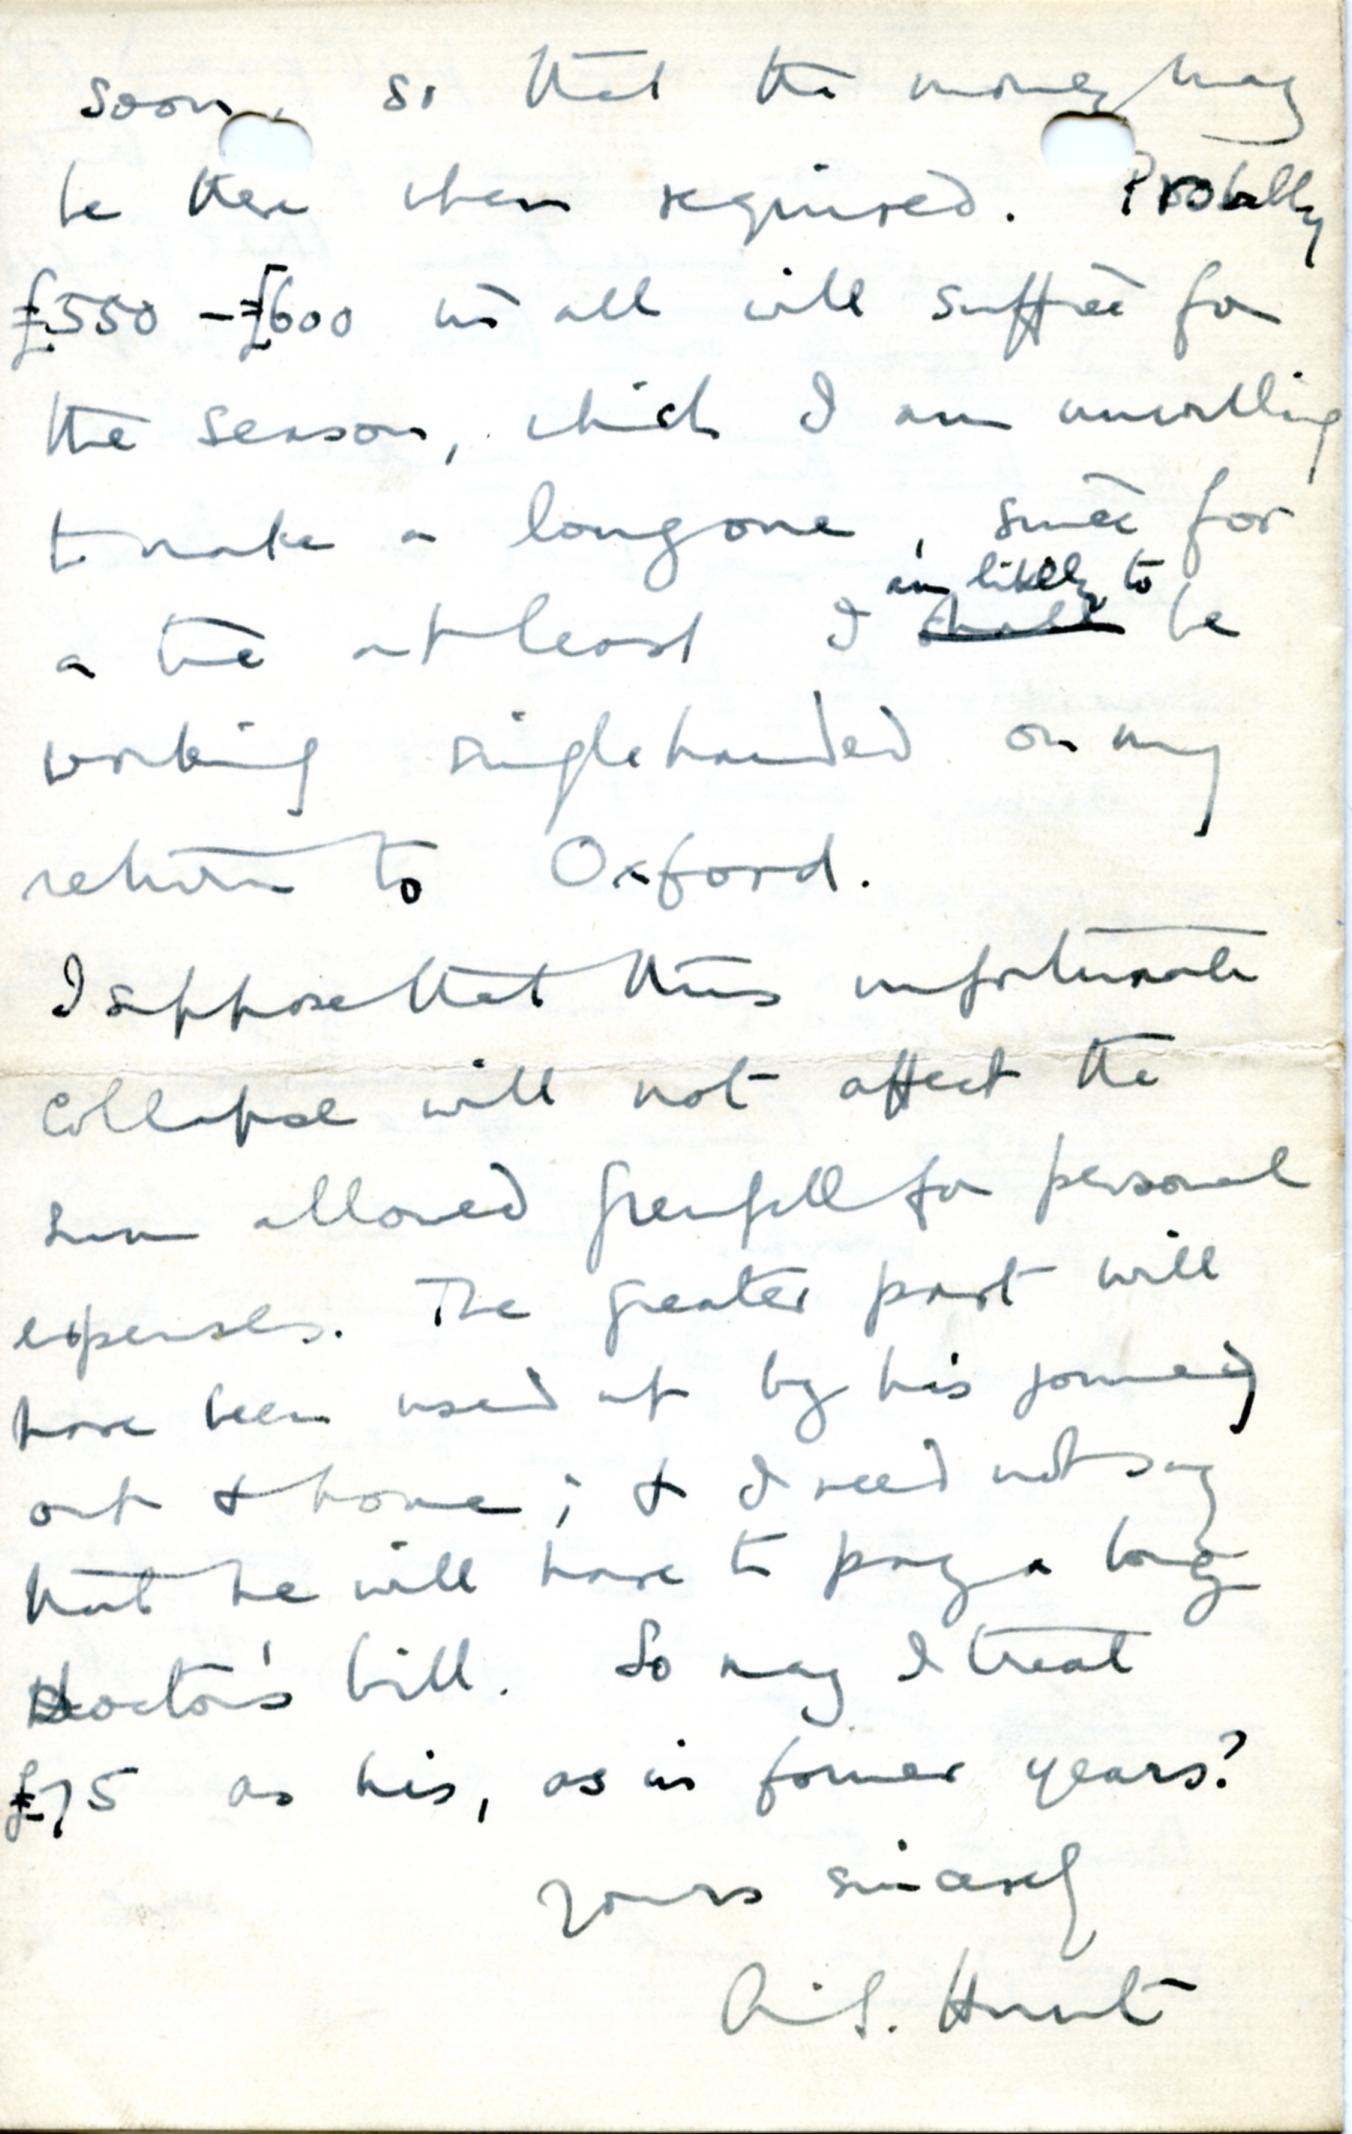 soon, so that the money may
be there when required. Probably
£550 - £600 in all will suffice for
the season, which I am unwilling
to make a long one, since for
a time at least I ~~shall~~ am likely to be
working singlehanded on my
return to Oxford.
I suppose that this unfortunate
collapse will not affect the
sum allowed Grenfell for personal
expenses. The greater part will
have been used up by his journey
out & home; & I need not say
that he will have to pay a long
Doctor's bill. So may I treat
£75 as his, as in former years?
Yours sincerely
A.S. Hunt